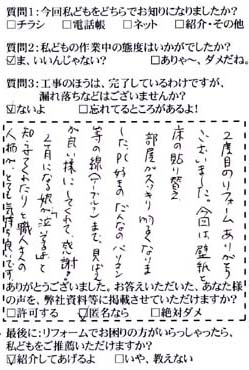 質問1：今回私どもをどちらでお知りになりましたか？
□チラシ　□電話帳　□ネット　□紹介・その他
質問2：私どもの作業中の態度はいかがでしたか？
☑ま、いいんじゃない？　□ありゃ～、ダメだね。
質問3：工事のほうは、完了しているわけですが、
漏れ落ちなどはございませんか？
☑ないよ　□忘れてるところがあるよ！
2度目のリフォームありがとう
ございました。今回は、壁紙と
床の貼り替え
部屋がスッキリ明るくなりま
した。PC好きのだんなのパソコン
等の線(ケーブル)まで、見ばえ
が良い様にしてくれて、感謝
2月になる娘が泣き
知って
くれたりと職人さんの
人柄がとても気持ち良いです。
ありがとうございました。お答えいただいた、あなた様
の声を、弊社資料等に掲載させていただけますか？
□許可する　☑匿名なら　□絶対ダメ
最後に：リフォームでお困りの方がいらっしゃったら、
私どもをご推薦いただけますか？
☑紹介してあげるよ　□いや、教えない